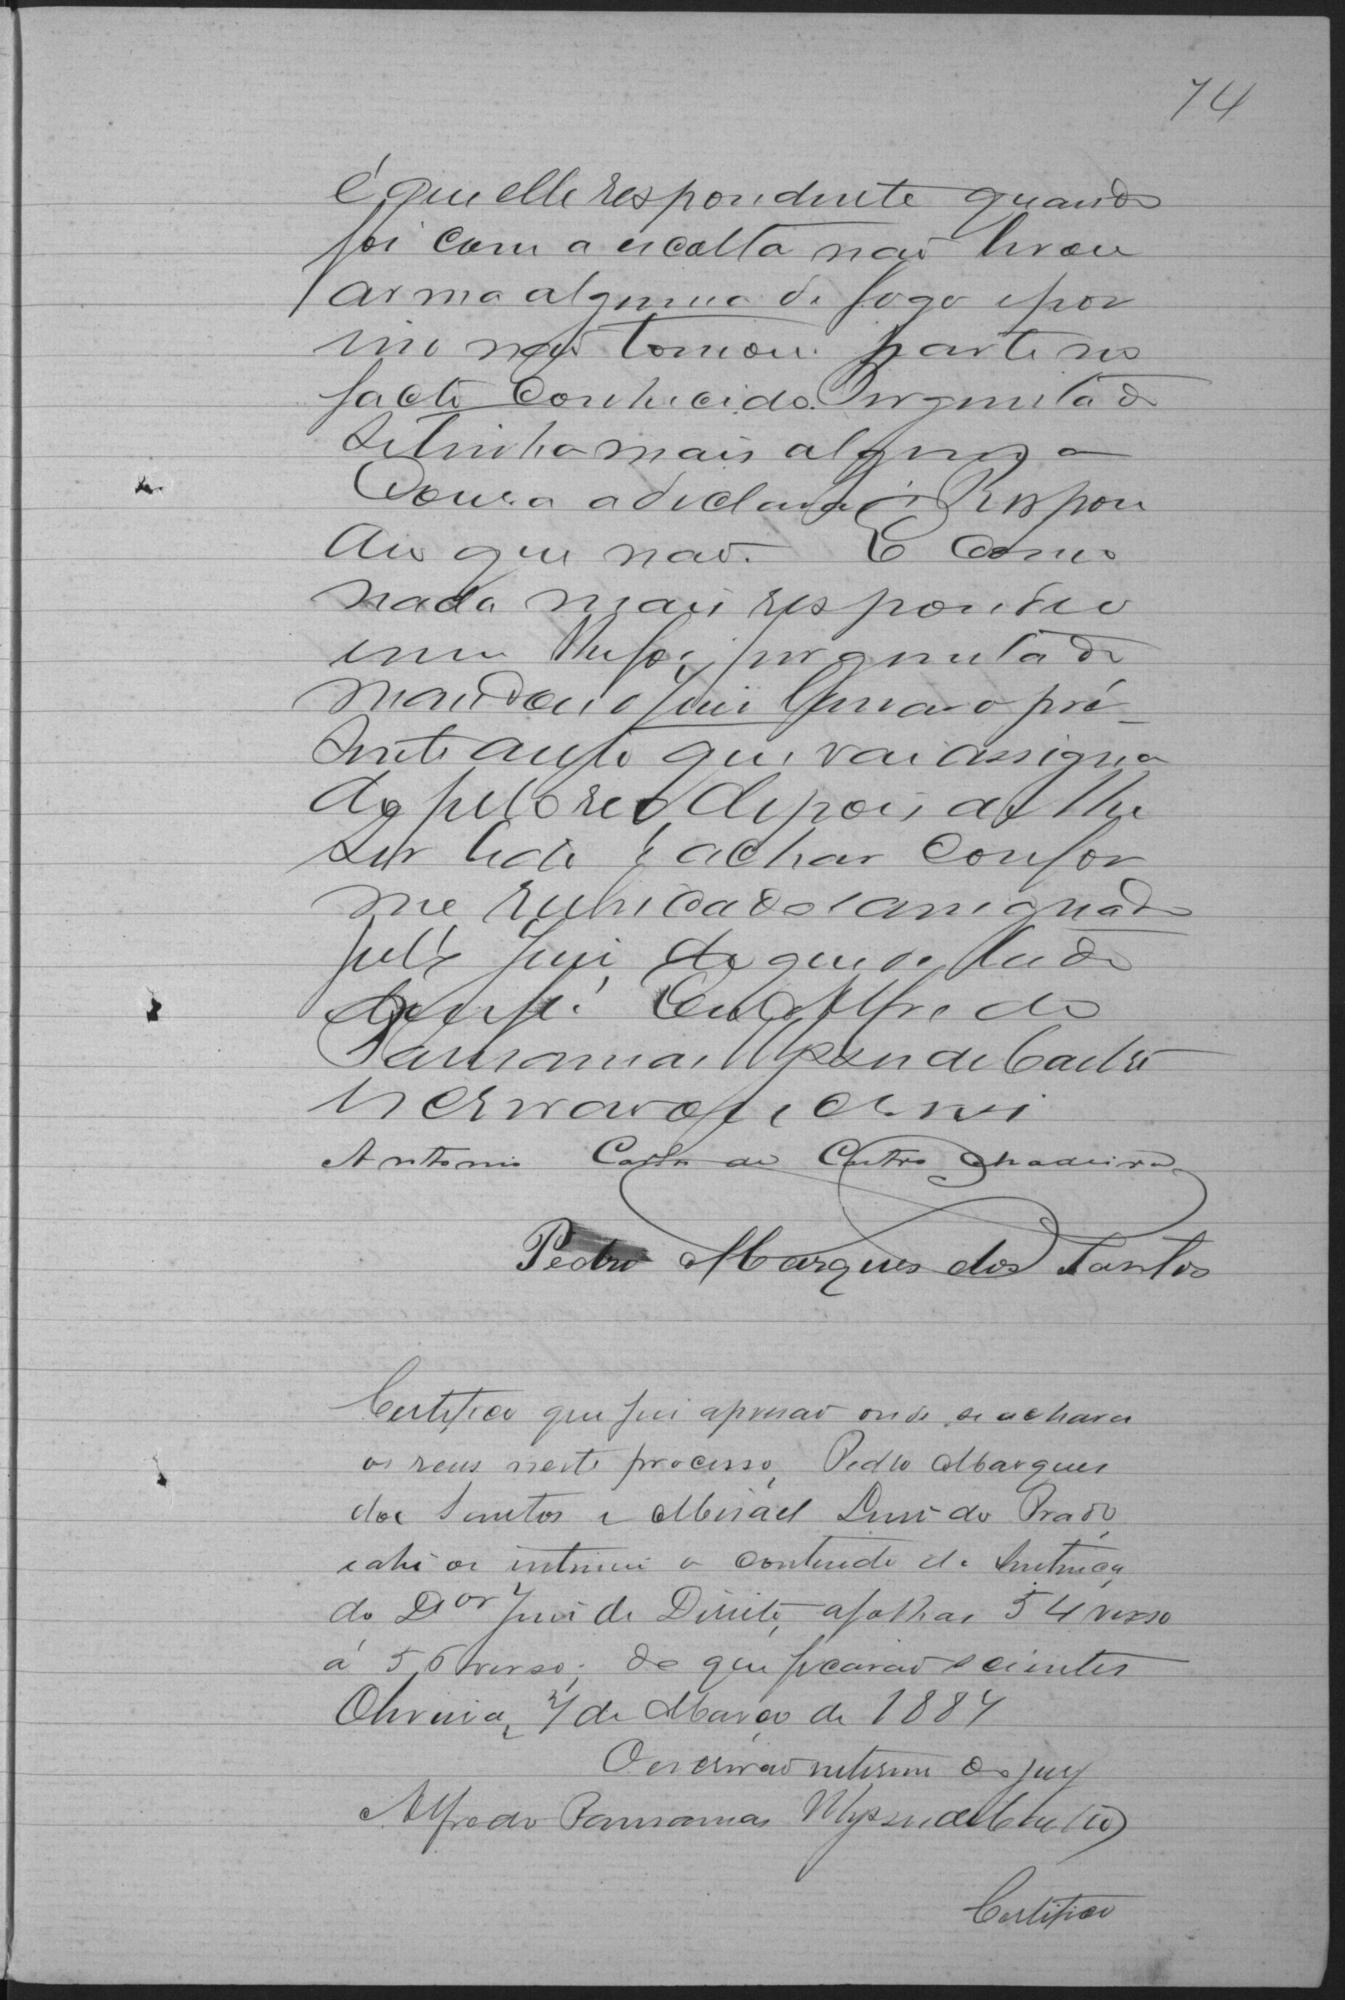 74
é que elle respondente quando
foi com a escolta não levou
arma alguma de fogo e por
isso não tomou parte no
facto conhecido. Perguntado
se tinha mais alguma
cousa a declarar? Respon
deo que não. E como
nada mais respondeo
nem lhe foi perguntado
mandou o Juiz lavrar o pre-
sente auto que vai assigna
do pelo reo depois de lhe
ser lido e achar confor
me rubricado e assignado
pelo Juiz do que de tudo
dou fé. Eu Alfredo
Parranmas Ulysses de Castro
escrivão que escrevi
Antonio Carlos de Castro Madeira
Pedro Marques dos Santos
Certifico que fui a prisão onde se achava
os reus neste processo, Pedro Marques
dos Santos e Misael Luis do Prado
e ahi os intimei o contendo da Sentença
do Dor Juiz de Direito, a folhas 54 verso
á 56 verso; do que ficarão scientes
Oliveira, 4 de Março de 1884
O escrivão interino do jury
Alfredo Parranmas Ulysses de Castro
Certifico